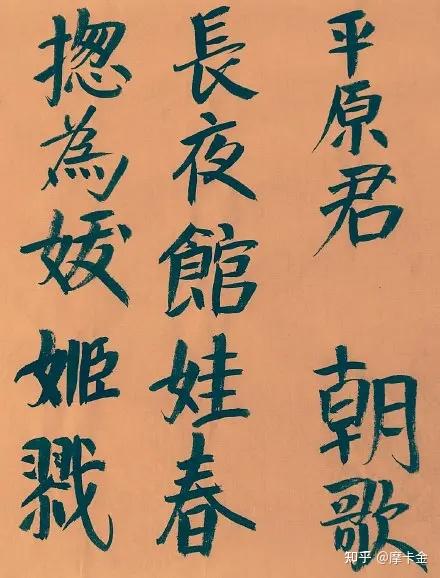 平原君 朝歌
長夜館娃春
揔為媛姬戮
知乎 @摩卡金